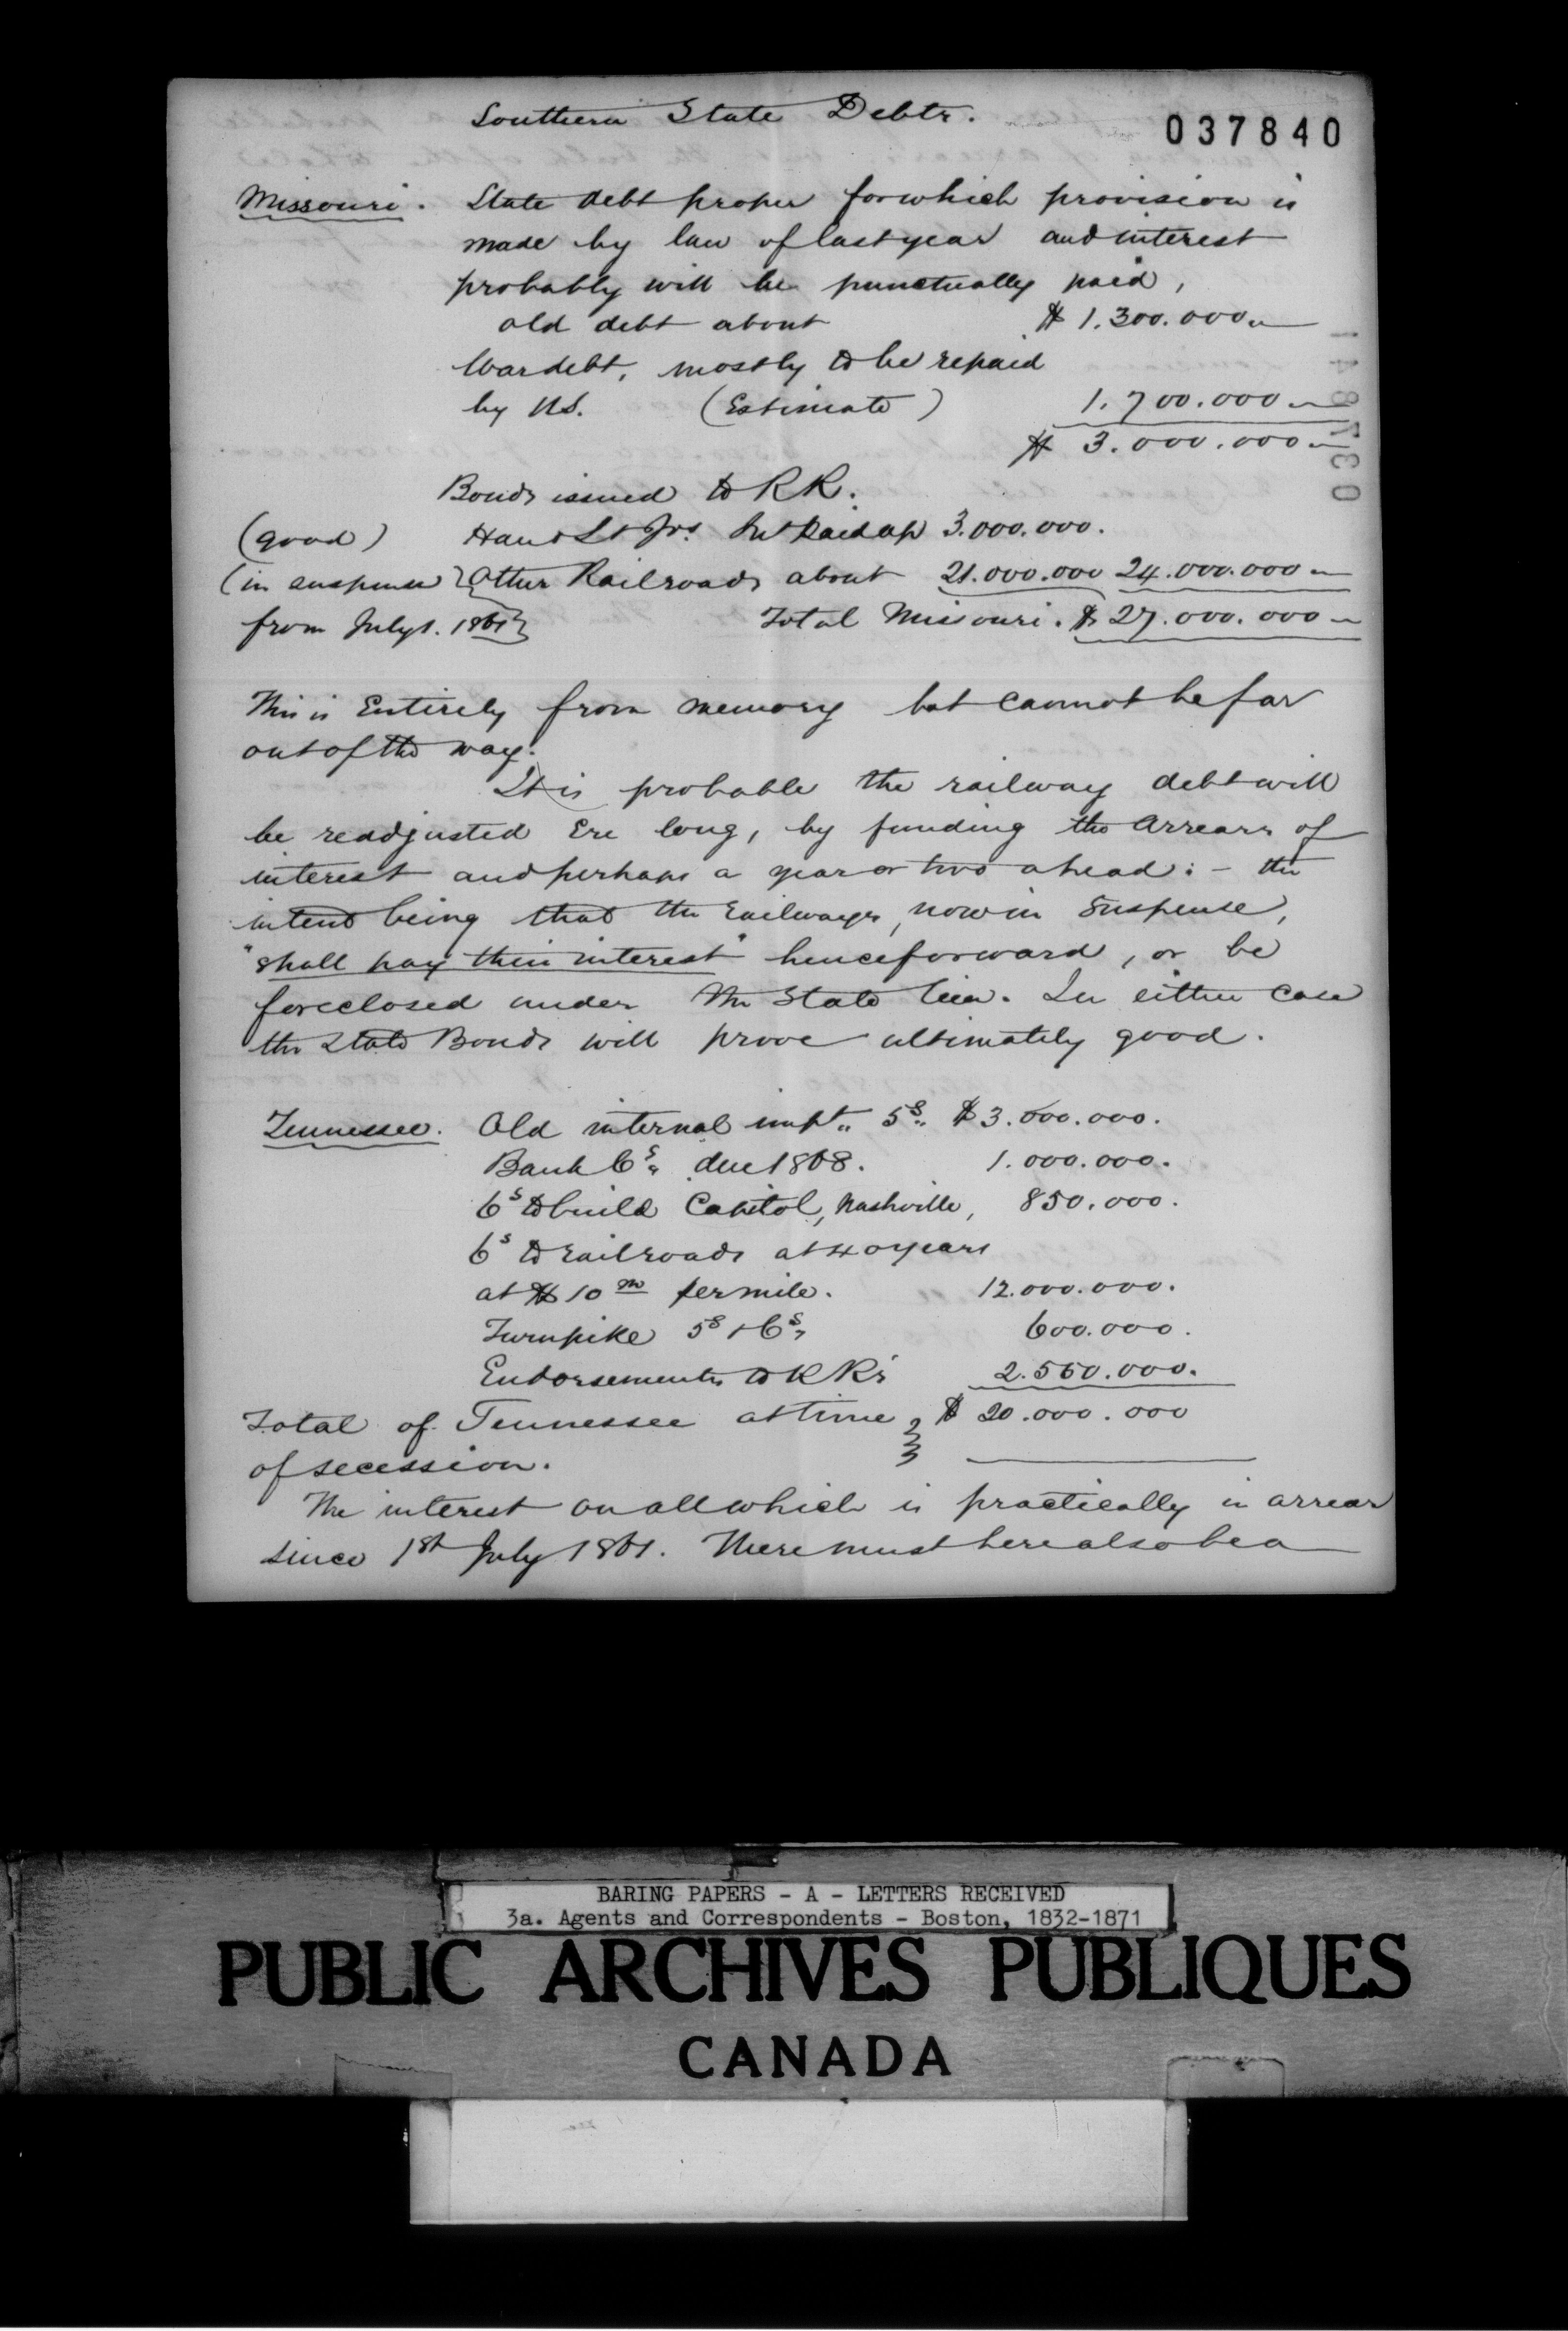 Southern State Debts.
037840
Missouri. State debt proper for which provision is
made by law of last year and interest
probably will be punctually paid,
old debt about $ 1.300.000
War debt, mostly to be repaid
by U.S. (Estimate) 1.700.000
$ 3.000.000
Bonds issued to RR.
(good) Han & St Jos. Int paid up 3.000.000.
(in suspense } Other Railroads about 21.000.000 24.000.000
from July 1. 1861 } Total Missouri. $ 27.000.000
This is Entirely from memory but cannot be far
out of the way.
It is probable the railway debt will
be readjusted Ere long, by funding the Arrears of
interest and perhaps a year or two ahead: - the
intent being that the railways, now in suspense,
"shall pay their interest" henceforward, or be
foreclosed under the State lien. In either case
the State Bonds will prove ultimately good.
Tennessee. Old internal impt. 5s. $ 3.000.000.
Bank 6s, due 1868. 1.000.000.
6s to build Capitol, Nashville, 850.000.
6s to railroads at 40 years
at $ 10 m per mile. 12.000.000.
Turnpike 5s & 6s, 600.000.
Endorsements to RRs 2.550.000.
Total of Tennessee at time } $ 20.000.000
of secession.
The interest on all which is practically in arrear
since 1st July 1861. There must here also be a
037841
BARING PAPERS - A - LETTERS RECEIVED
3a. Agents and Correspondents - Boston, 1832-1871
PUBLIC ARCHIVES PUBLIQUES
CANADA